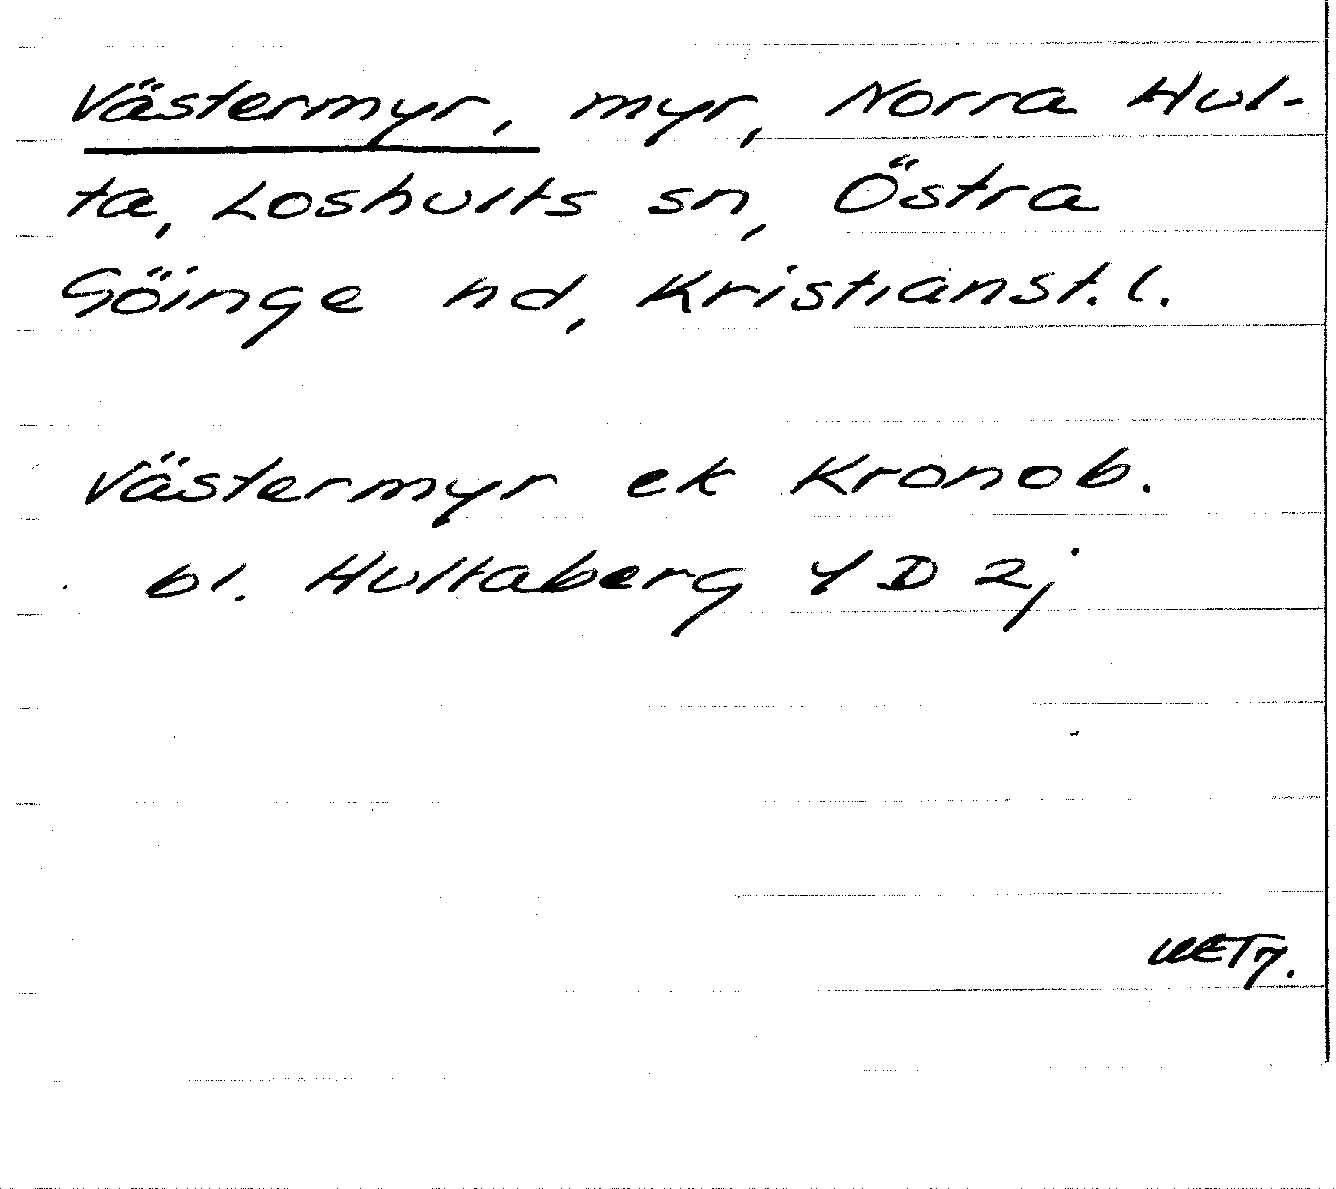 Västermyr, myr, Norra Hul-
ta, Loshults sn, Östra
Göinge hd, Kristianst. l.
Västermyr ek Kronob.
bl. Hultaberg 4 D 2j